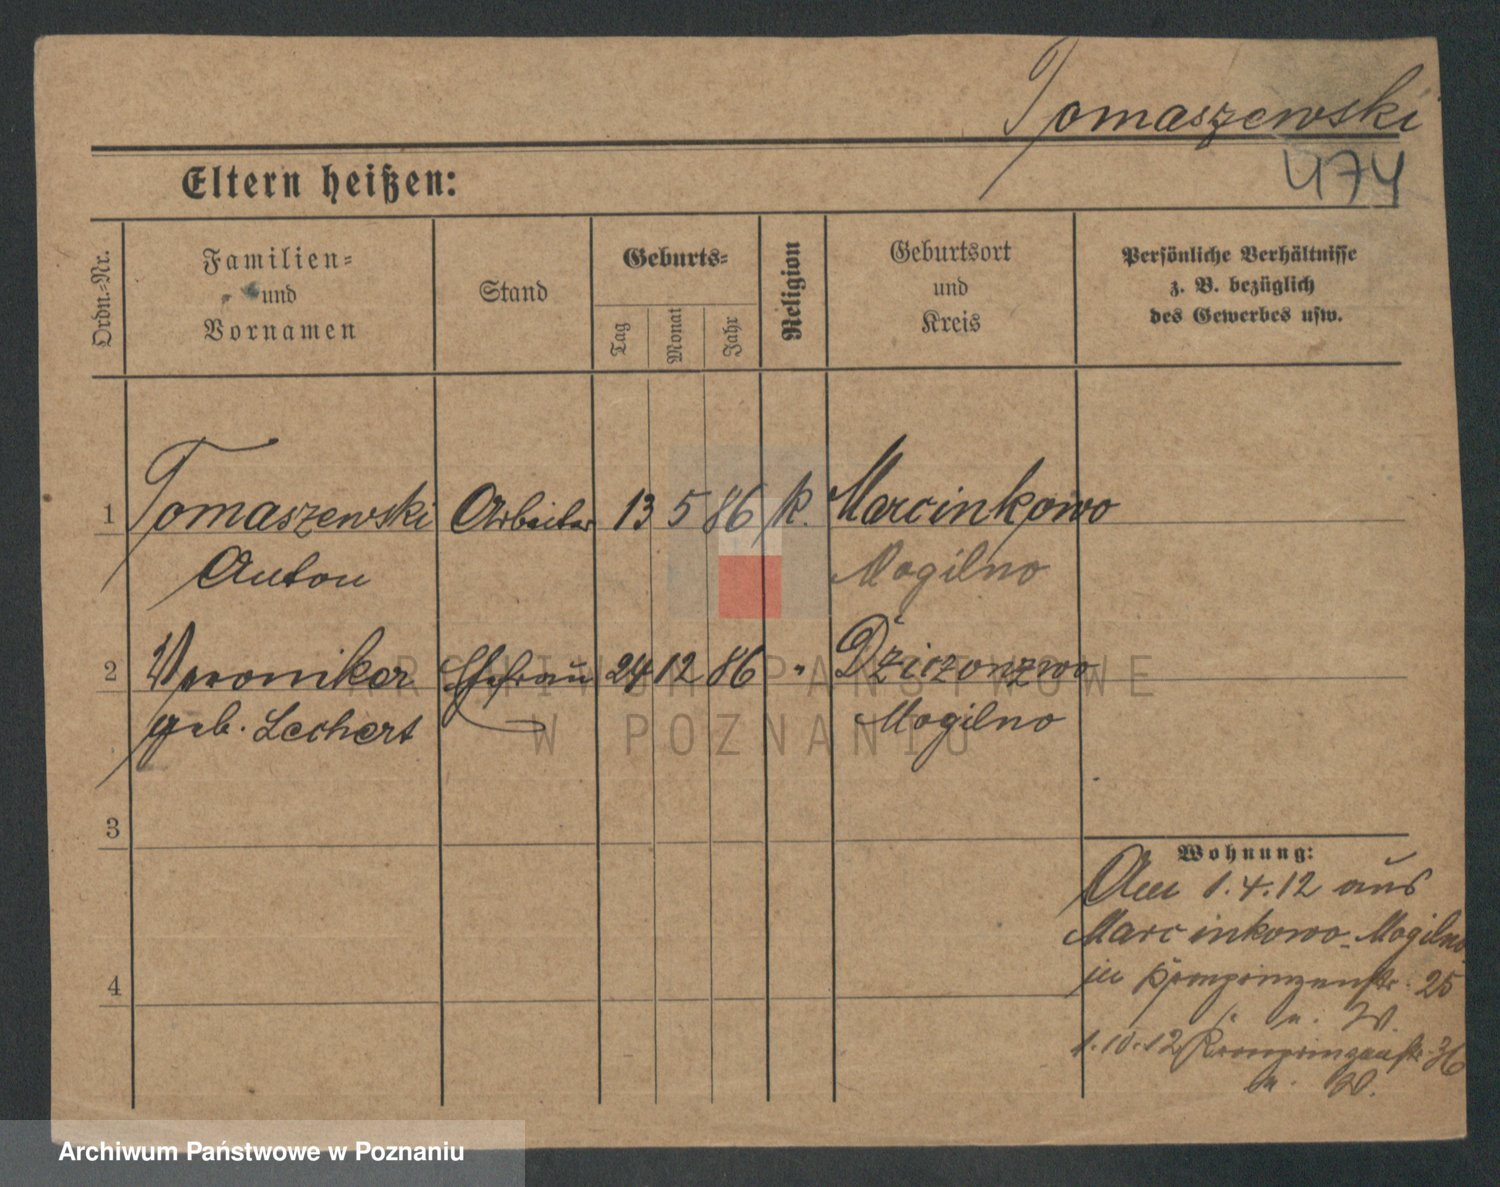 Tomaszewski
474
Eltern heißen:
Ordn.-Nr.
Familien-
und
Vornamen
Stand
Geburts-
Tag
Monat
Jahr
Religion
Geburtsort
und
Kreis
Persönliche Verhältnisse
z. B. bezüglich
des Gewerbes usw.
1 Tomaszewski Arbeiter 13 5 86 k. Marcinkowo
Anton Mogilno
2 Veronika Ehefrau 24 12 86 " 
geb. Lechert Mogilno
3
4
Wohnung:
Am 1.4.12 aus
Marcinkowo-Mogilno
in Kronprinzenstr. 25
1.10.12 Kronprinzenstr. 36
ARCHIWUM PAŃSTWOWE
W POZNANIU
Archiwum Państwowe w Poznaniu